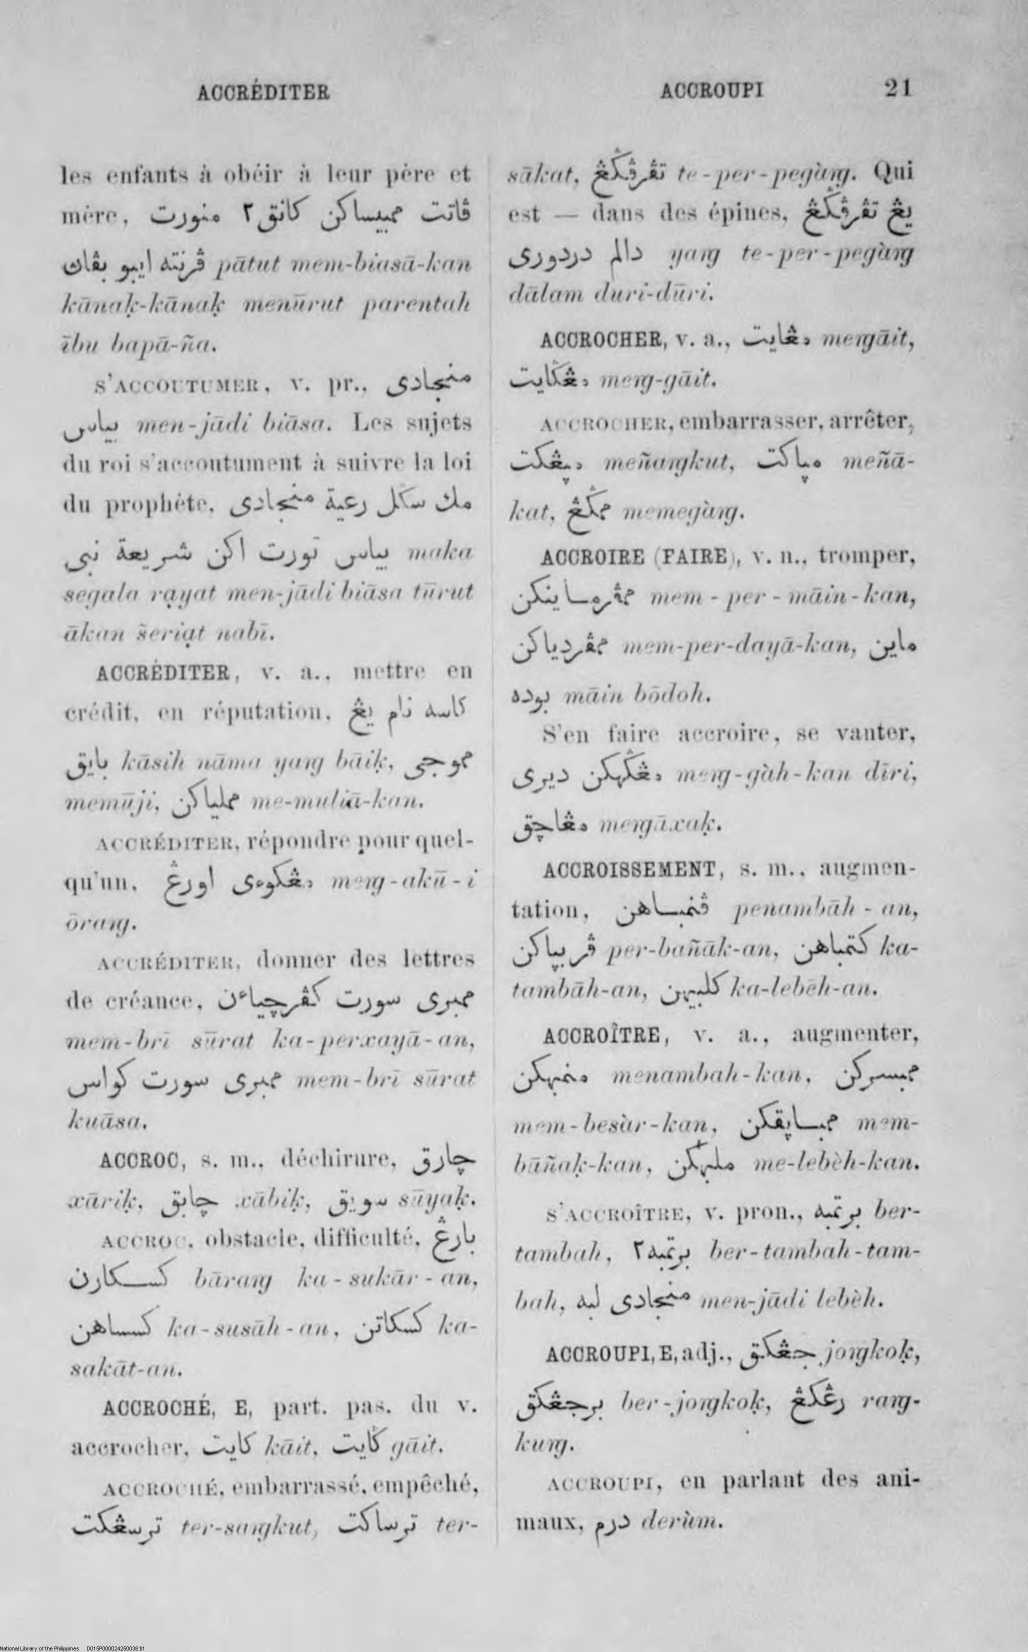 ACCRÉDITER
ACCROUPI 21
les enfants à obéir à leur père et
mère, ڤاتت ممبيساكن كانق٢ منورت
ڤرنته ايبو بڤاڽ pātut mem-biasā-kan
kānaḳ-kānaḳ menūrut parentah
ību bapā-ña.
S'ACCOUTUMER, v. pr., منجادى
بياس men-jādi biāsa. Les sujets
du roi s'accoutument à suivre la loi
du prophète, مك سݢل رعية منجادى
بياس تورت اكن شريعة نبى maka
segala rạyat men-jādi biāsa tūrut
ākan šeriạt nabī.
ACCRÉDITER, v. a., mettre en
crédit, en réputation, كاسه نام يڠ
بايق kāsih nāma yaŋg bāiḳ, مموجى
memūji, مملياكن me-muliā-kan.
ACCRÉDITER, répondre pour quel-
qu'un, مڠكوءى اورڠ meŋg-akū-i
ōraŋg.
ACCRÉDITER, donner des lettres
de créance, ممبرى سورت كڤرچياءن
mem-brī sūrat ka-perxayā-an,
ممبرى سورت كواس mem-brī sūrat
kuāsa.
ACCROC, s. m., déchirure, چارق
xāriḳ, چابق xābiḳ, سويق sūyaḳ.
ACCROC, obstacle, difficulté, بارڠ
كسكارن bāraŋg ka-sukār-an,
كسساهن ka-susāh-an, كسكاتن ka-
sakāt-an.
ACCROCHÉ, E, part. pas. du v.
accrocher, كايت kāit, ݢايت gāit.
ACCROCHÉ, embarrassé, empêché,
ترسڠكت ter-saŋgkut, ترساكت ter-
sākat, تڤرڤݢڠ te-per-pegàŋg. Qui
est — dans des épines, يڠ تڤرڤݢڠ
دالم دردورى yaŋg te-per-pegàŋg
dālam duri-dūri.
ACCROCHER, v. a., مڠايت meŋgāit,
مڠݢايت meŋg-gāit.
ACCROCHER, embarrasser, arrêter,
مڽڠكت meñaŋgkut, مڽاكت meñā-
kat, ممݢڠ memegàŋg.
ACCROIRE (FAIRE), v. n., tromper,
ممڤرماينكن mem-per-māin-kan,
ممڤردياكن mem-per-dayā-kan, ماين
بوده māin bōdoh.
S'en faire accroire, se vanter,
مڠݢهكن ديرى meŋg-gàh-kan dīri,
مڠاچق meŋgāxaḳ.
ACCROISSEMENT, s. m., augmen-
tation, ڤنمباهن penambāh-an,
ڤربڽاكن per-bañāk-an, كتمباهن ka-
tambāh-an, كلبيهن ka-lebēh-an.
ACCROÎTRE, v. a., augmenter,
منمبهكن menambah-kan, ممبسركن
mem-besàr-kan, ممباڽقكن mem-
bāñaḳ-kan, ملبهكن me-lebèh-kan.
S'ACCROÎTRE, v. pron., برتمبه ber-
tambah, برتمبه٢ ber-tambah-tam-
bah, منجادى لبه men-jādi lebèh.
ACCROUPI, E, adj., جڠكق joŋgkoḳ,
برجڠكق ber-joŋgkoḳ, رڠكڠ raŋg-
kuŋg.
ACCROUPI, en parlant des ani-
maux, درم derùm.
National Library of the Philippines